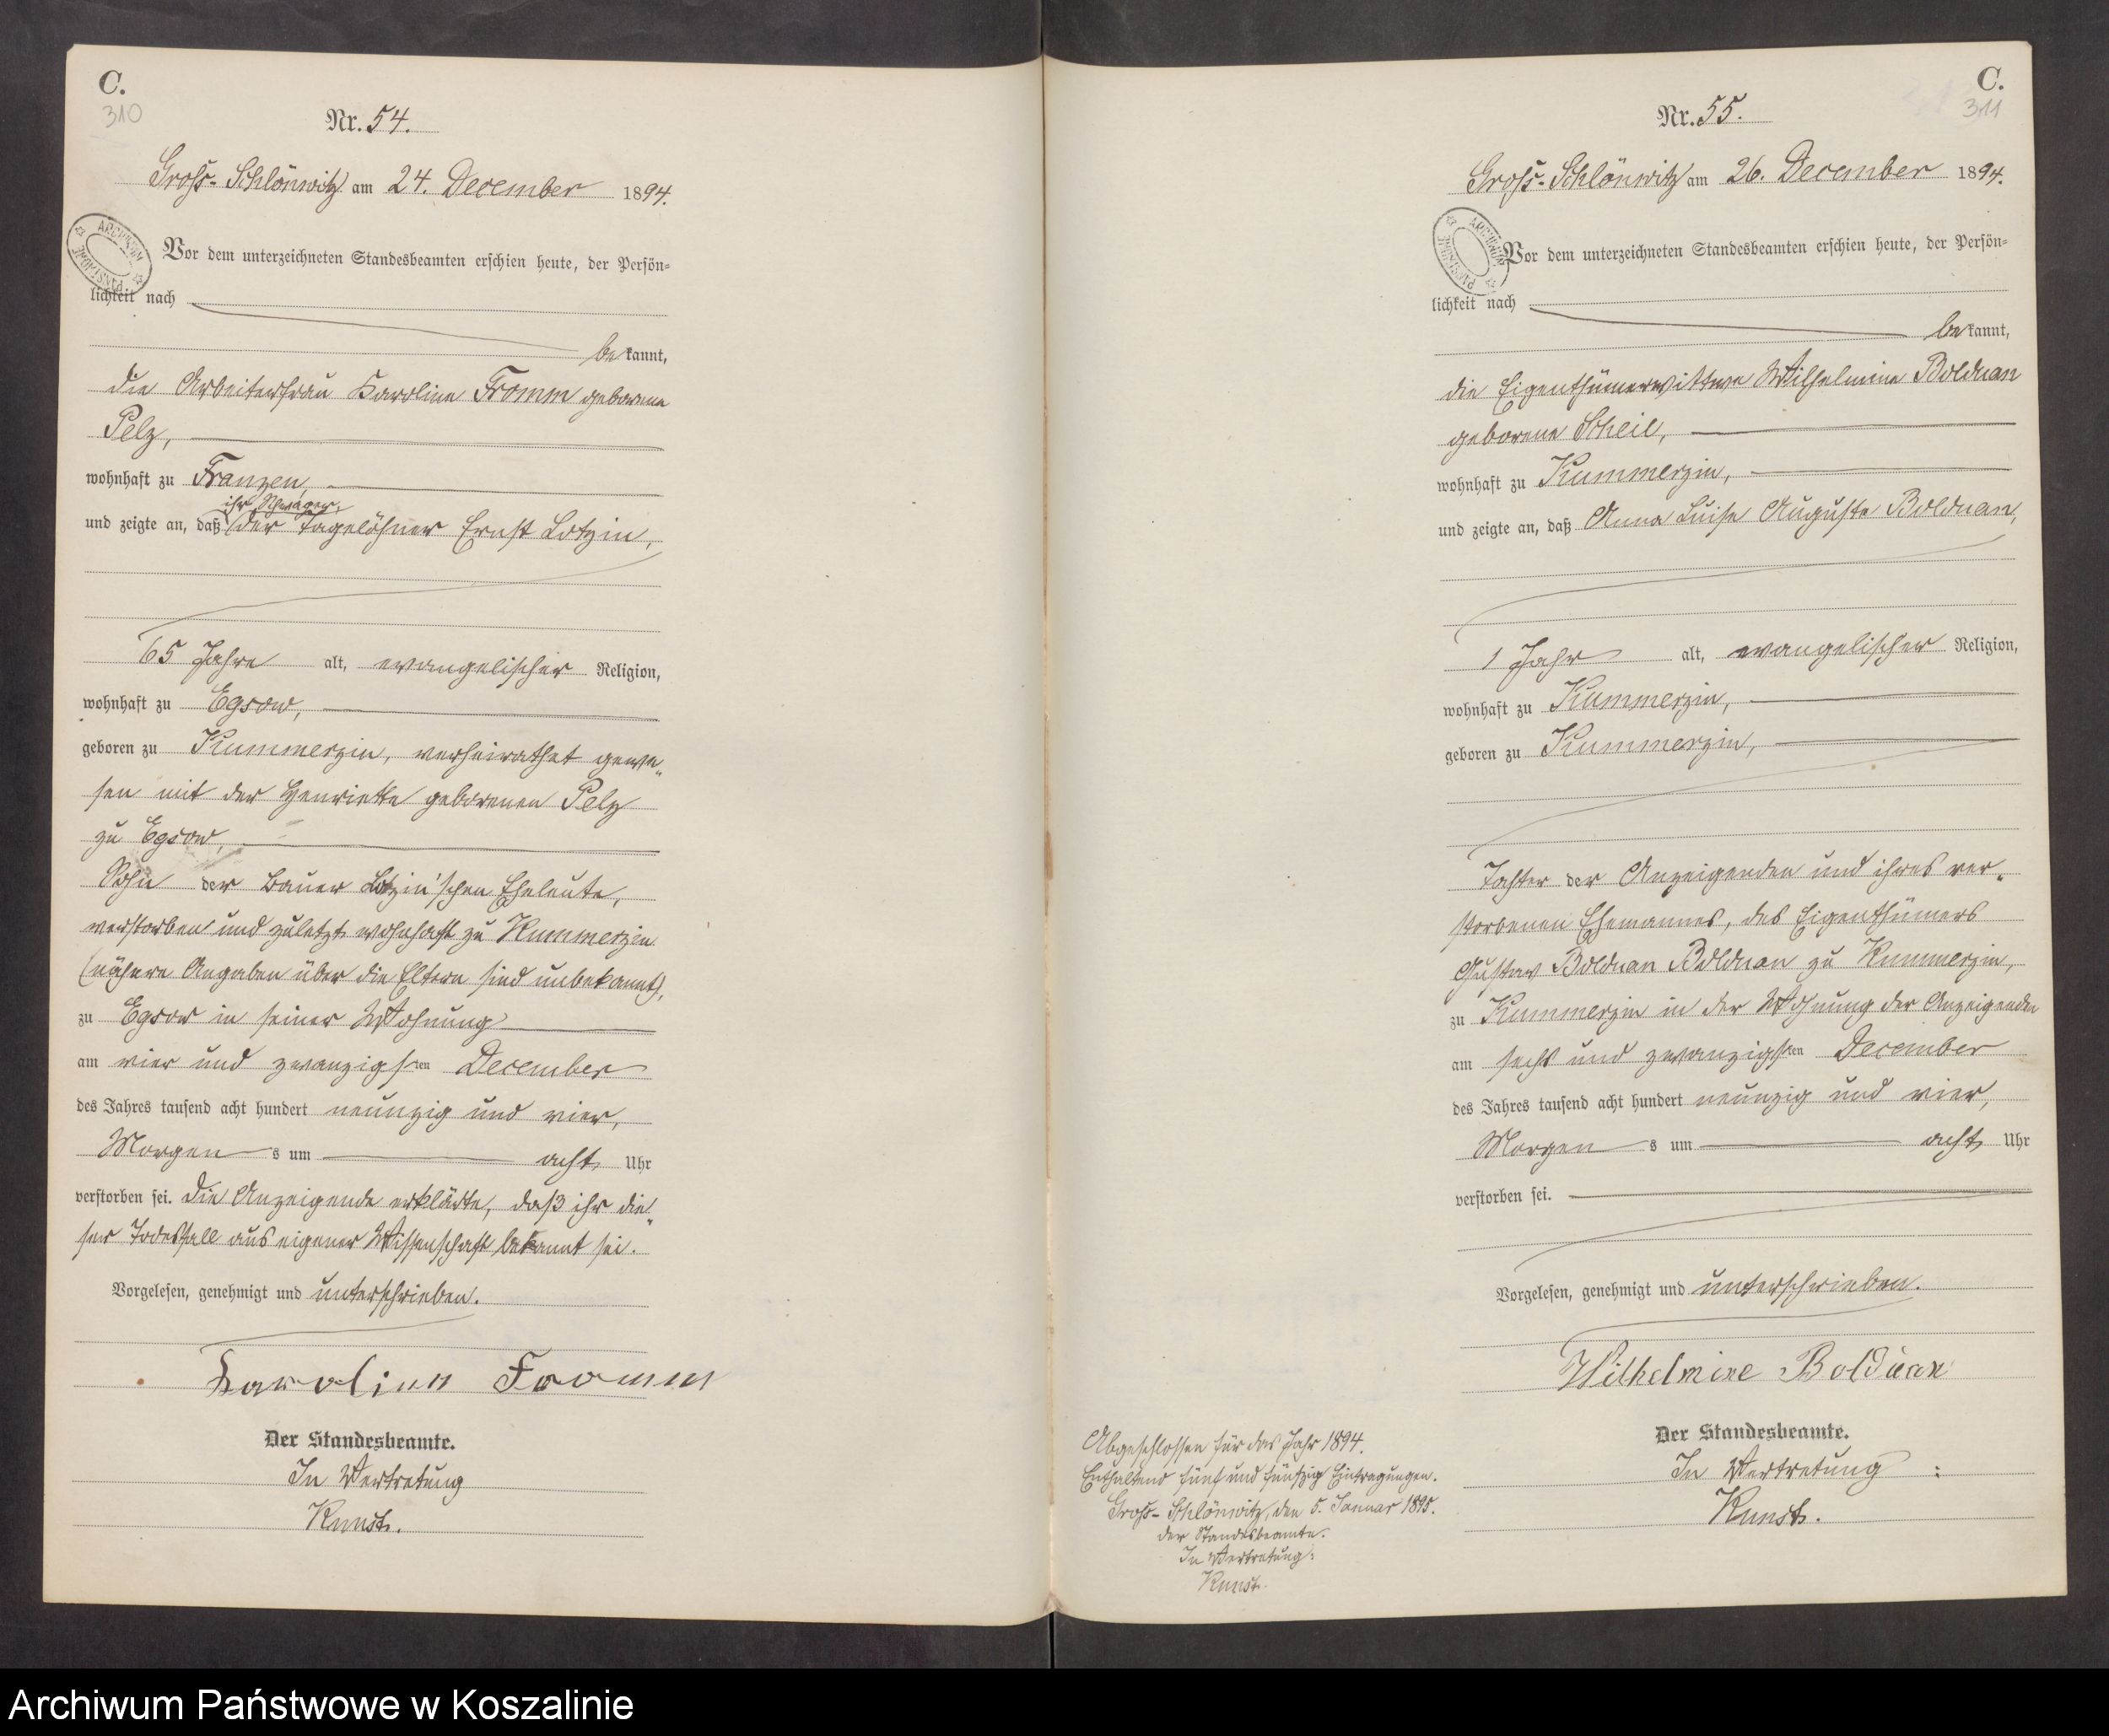 C.
310
Nr. 54.
Gross-Schlönwitz am 24. December 1894.
Vor dem unterzeichneten Standesbeamten erschien heute, der Persön-
lichkeit nach
bekannt,
die Arbeiterfrau Karoline Fromm geborene
Pelz,
wohnhaft zu Franzen,
ihr Schwager,
und zeigte an, daß der Tagelöhner Ernst Lotzin,
65 Jahre alt, evangelischer Religion,
wohnhaft zu Egsow,
geboren zu Kummerzin, verheirathet gewe-
sen mit der Henriette geborenen Pelz
zu Egsow,
Sohn der Bauer Lotzin'schen Eheleute,
verstorben und zuletzt wohnhaft zu Kummerzin
(nähere Angaben über die Eltern sind unbekannt),
zu Egsow in seiner Wohnung
am vier und zwanzigsten December
des Jahres tausend acht hundert neunzig und vier,
Morgens um acht Uhr
verstorben sei. Die Anzeigende erklärte, daß ihr die-
ser Todesfall aus eigener Wissenschaft bekannt sei.
Vorgelesen, genehmigt und unterschrieben.
Karoline Fromm
Der Standesbeamte.
In Vertretung
Kunst.
C.
311
Nr. 55.
Gross-Schlönwitz am 26. December 1894.
Vor dem unterzeichneten Standesbeamten erschien heute, der Persön-
lichkeit nach
bekannt,
die Eigenthümerwittwe Wilhelmine Bolduan
geborene Scheil,
wohnhaft zu Kummerzin,
und zeigte an, daß Anna Luise Auguste Bolduan,
1 Jahr alt, evangelischer Religion,
wohnhaft zu Kummerzin,
geboren zu Kummerzin,
Tochter der Anzeigenden und ihres ver-
storbenen Ehemannes, des Eigenthümers
Gustav Bolduan Bolduan zu Kummerzin,
zu Kummerzin in der Wohnung der Anzeigenden
am sechs und zwanzigsten December
des Jahres tausend acht hundert neunzig und vier,
Morgens um acht Uhr
verstorben sei.
Vorgelesen, genehmigt und unterschrieben.
Wilhelmine Bolduan
Der Standesbeamte.
In Vertretung:
Kunst.
Abgeschlossen für das Jahr 1894.
Enthaltend fünf und fünfzig Eintragungen.
Gross-Schlönwitz, den 5. Januar 1895.
Der Standesbeamte.
In Vertretung:
Kunst.
Archiwum Państwowe w Koszalinie